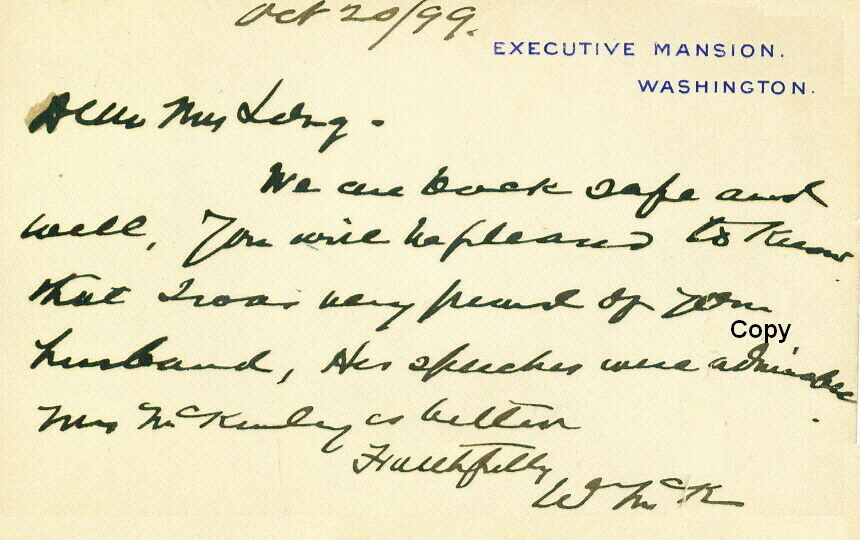 Oct 20/99.
EXECUTIVE MANSION.
WASHINGTON.
Dear Mrs Long -
We are back safe and
well, You will be pleased to know
that I was very proud of your
Copy
husband, His speeches were admirable
Mrs McKinley is better
Faithfully
W McK